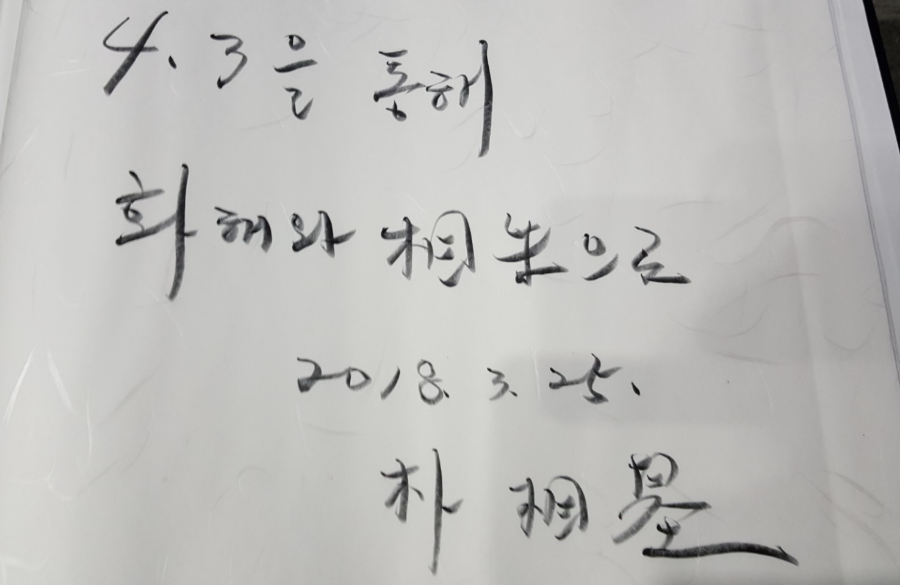 4.3을 통해
화해와 相生으로
2018. 3. 25.
朴相